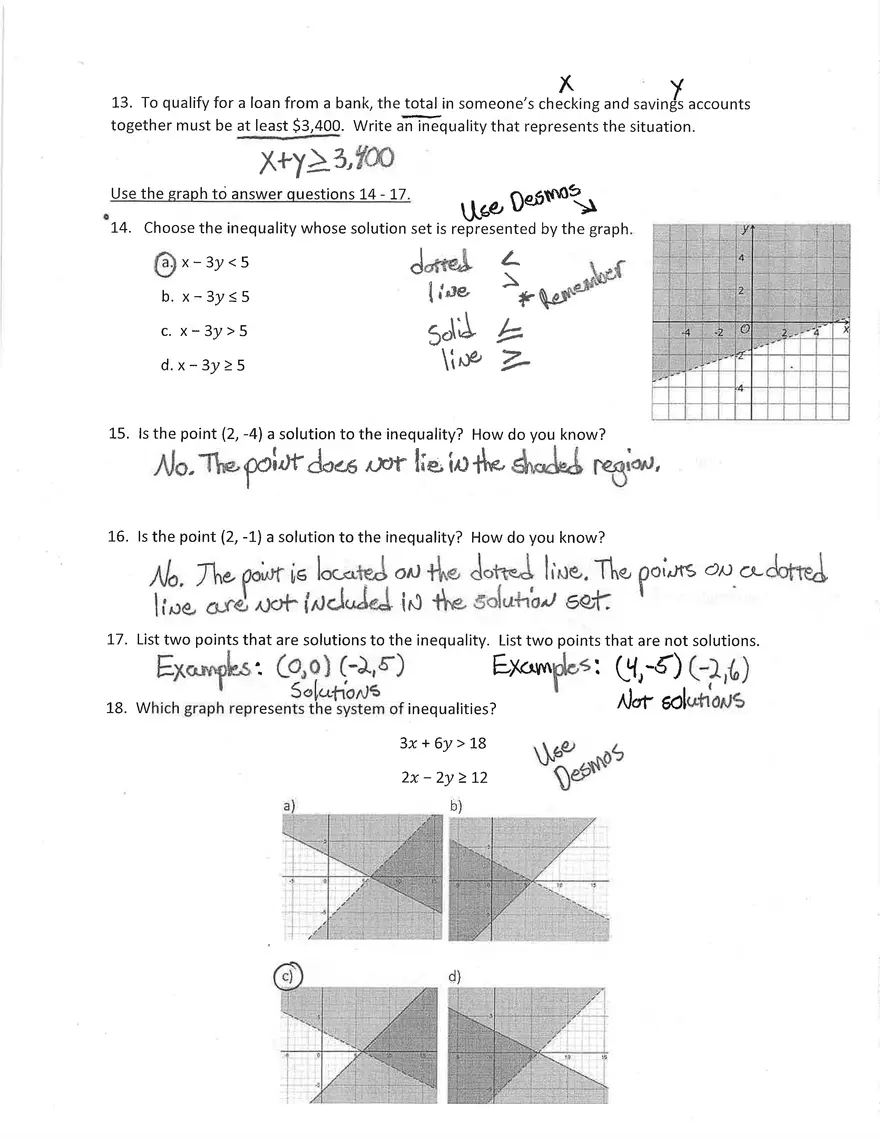 X y
13. To qualify for a loan from a bank, the total in someone's checking and savings accounts
together must be at least $3,400. Write an inequality that represents the situation.
x+y≥3,400
Use the graph to answer questions 14 - 17.
Use Desmos
14. Choose the inequality whose solution set is represented by the graph.
a. x – 3y < 5
b. x – 3y ≤ 5
c. x – 3y > 5
d. x – 3y ≥ 5
dotted <
line >
* Remember
Solid ≤
line ≥
y
4
2
-4 -2 O 2 4 x
-2
-4
15. Is the point (2, -4) a solution to the inequality? How do you know?
No. The point does not lie in the shaded region.
16. Is the point (2, -1) a solution to the inequality? How do you know?
No. The point is located on the dotted line. The points on a dotted
line are not included in the solution set.
17. List two points that are solutions to the inequality. List two points that are not solutions.
Examples: (0,0) (-2,5) Examples: (4,-5) (-2,6)
Solutions Not solutions
18. Which graph represents the system of inequalities?
3x + 6y > 18
2x – 2y ≥ 12
Use
Desmos
a) b)
c) d)